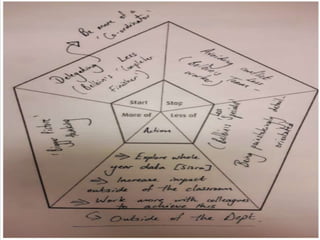 Be more of a
'Co-ordinator'
Delegating
Less
(Belbin's 'Completer
Finisher')
Avoiding conflict
(Belbin's 'Team-
worker')
Start
Stop
More of
Less of
Action
Being
detail
orientated
→ Explore whole
year data [Sisra]
→ Increase impact
outside of the classroom
→ Work more with colleagues
to achieve this
Outside of the Dept.